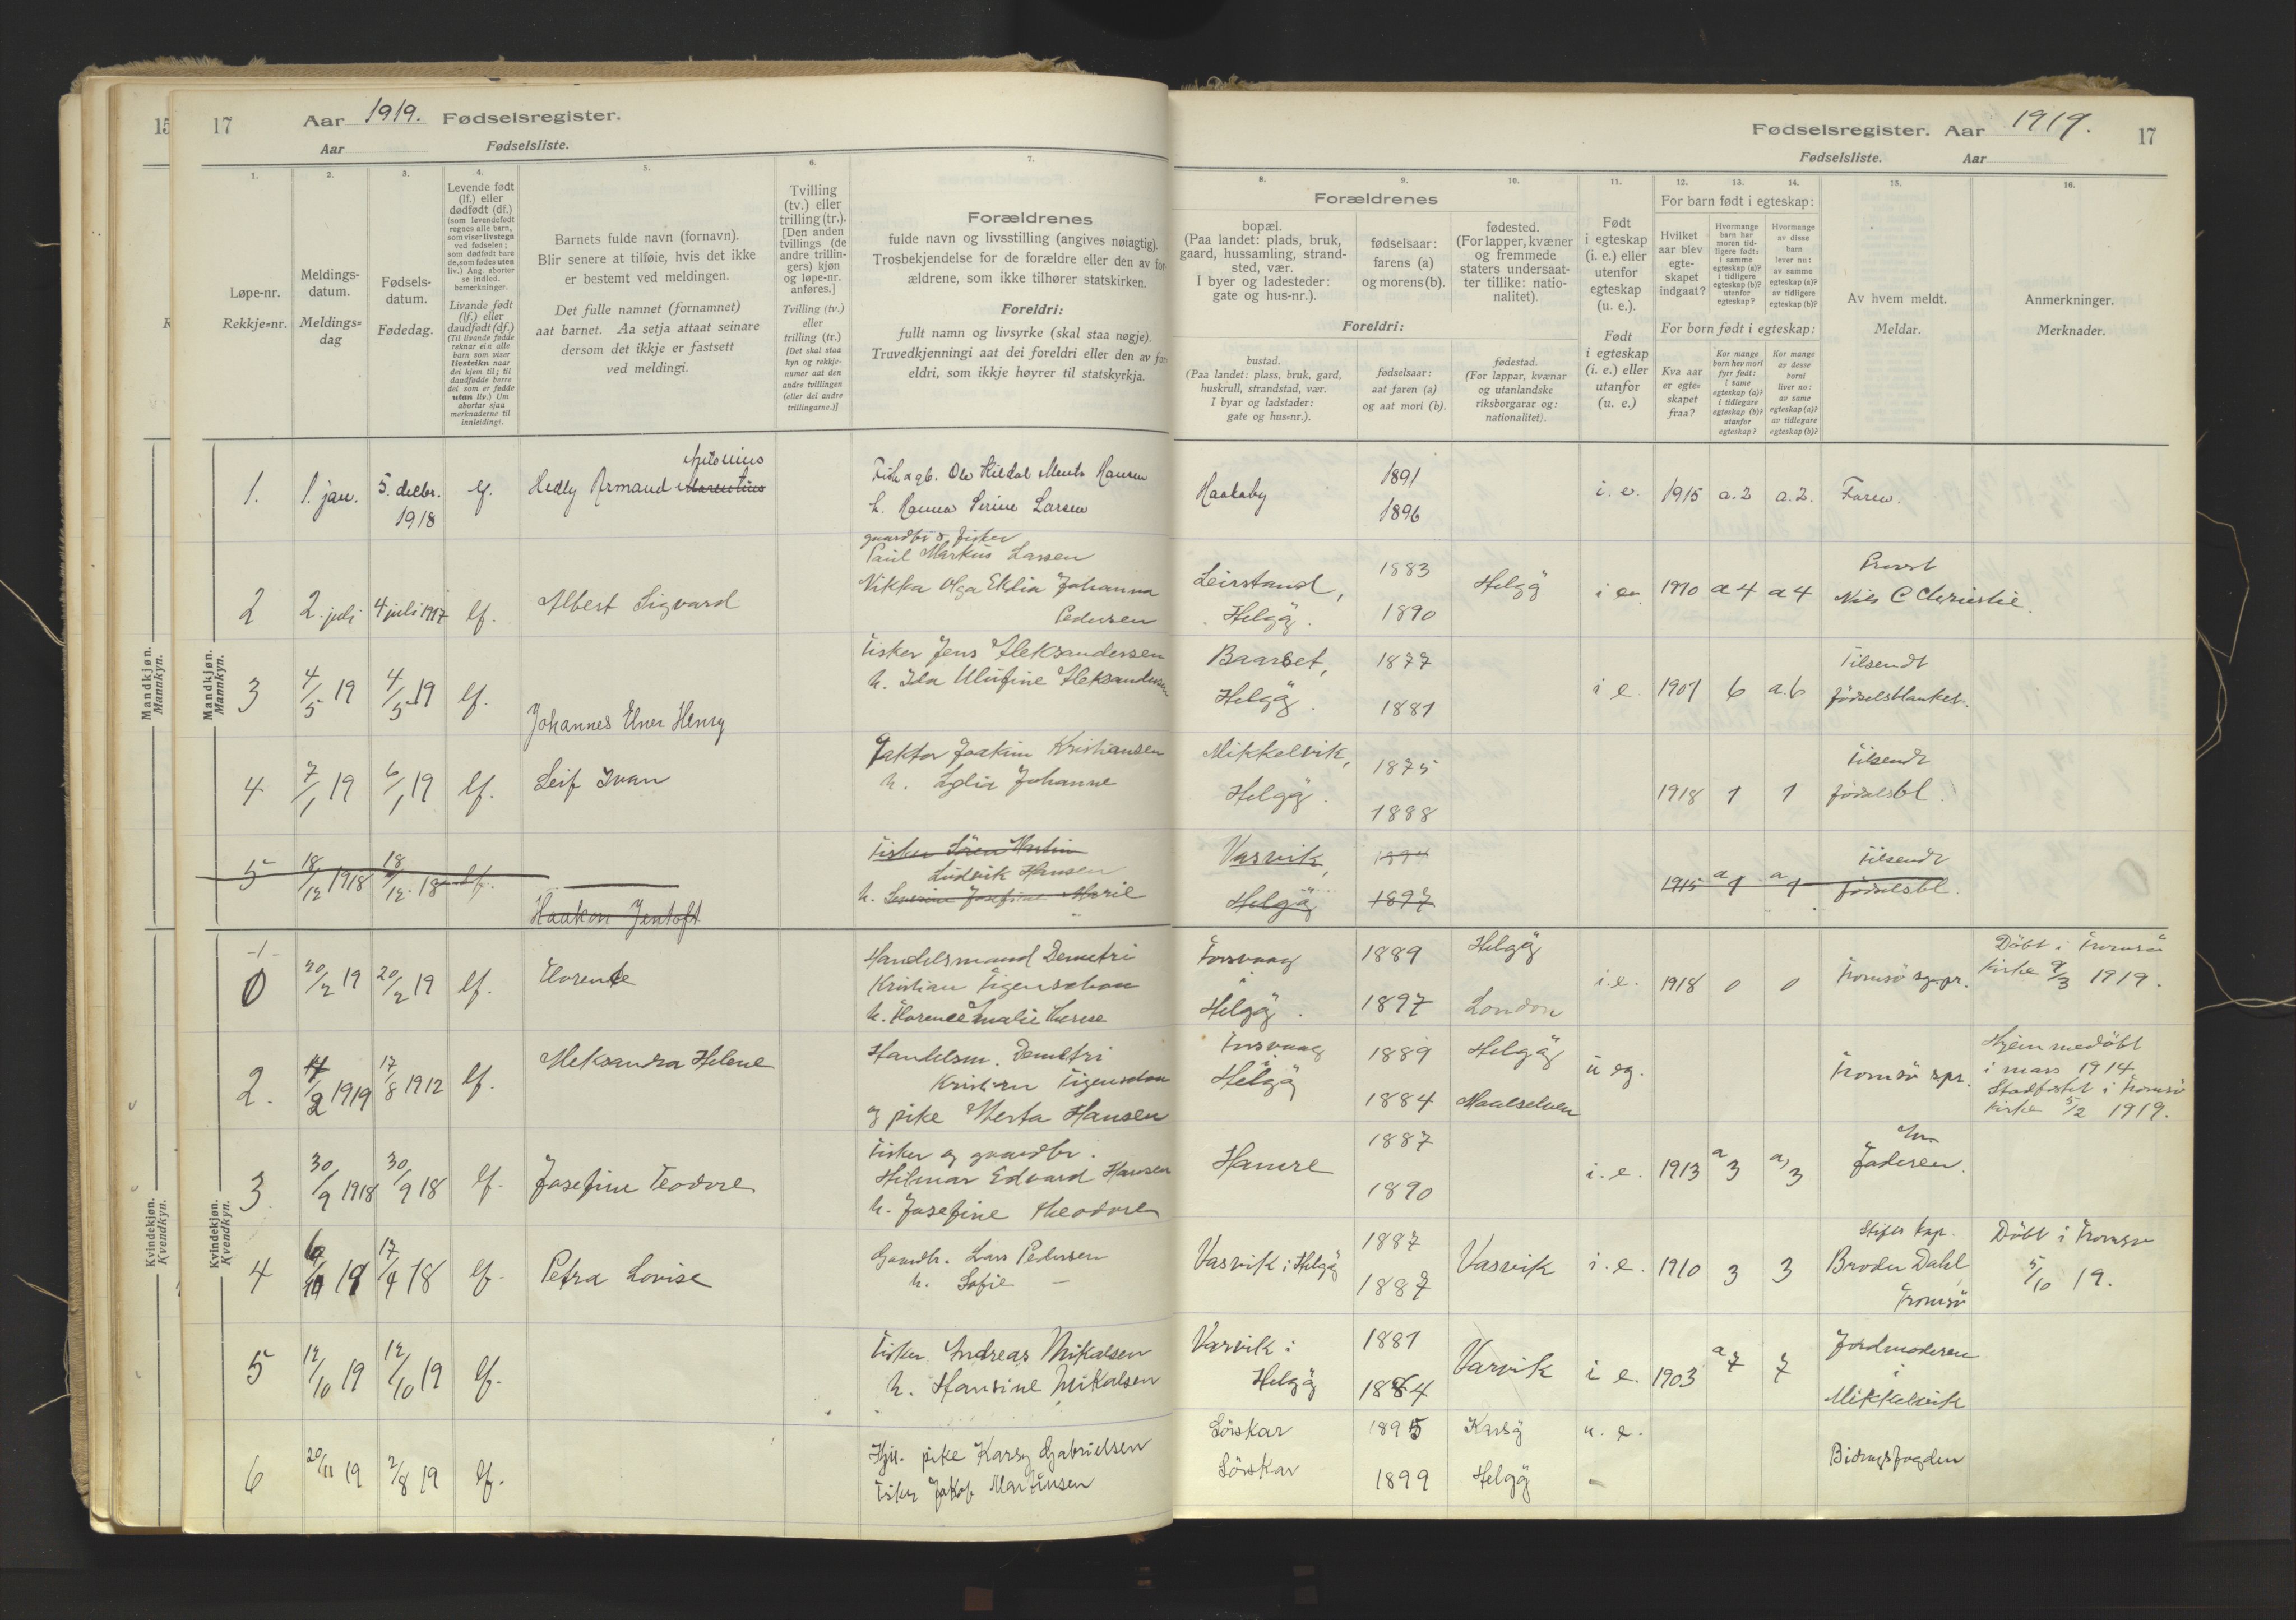 15
17
Aar 1919. Fødselsregister.
Aar Fødselsliste.
1.
2.
3.
4.
5.
6.
7.
Løpe-nr.
Rekkje=nr.
Meldings-
datum.
Meldings=
dag
Fødsels-
datum.
Fødedag.
Levende født
(lf.) eller
dødfødt (df.)
(som levendefødt
regnes alle barn,
som viser livstegn
ved fødselen;
som dødfødt bare
de, som fødes uten
liv.) Ang. aborter
se indled.
bemerkninger.
Livande født
(lf.) eller
daudfødt (df.)
(Til livande fødde
reknar ein alle
barn som viser
livsteikn naar
dei kjem til; til
daudfødde berre
dei som er fødde
utan liv.) Um
abortar sjaa
merknaderne til
innleidingi.
Barnets fulde navn (fornavn).
Blir senere at tilføie, hvis det ikke
er bestemt ved meldingen.
Det fulle namnet (fornamnet)
aat barnet. Aa setja attaat seinare
dersom det ikkje er fastsett
ved meldingi.
Tvilling
(tv.) eller
trilling (tr.).
[Den anden
tvillings (de
andre trillin-
gers) kjøn
og løpe-nr.
anføres.]
Tvilling (tv.)
eller
trilling (tr.)
[Det skal staa
kyn og rekkje-
numer aat den
andre tvillingen
(eller dei andre
trillingarne.)]
Forældrenes
fulde navn og livsstilling (angives nøiagtig).
Trosbekjendelse for de forældre eller den av for-
ældrene, som ikke tilhører statskirken.
Foreldri:
fullt namn og livsyrke (skal staa nøgje).
Truvedkjenningi aat dei foreldri eller den av for-
eldri, som ikkje høyrer til statskyrkja.
Mandkjøn.
Mannkyn.
Mandkjøn.
Mannkyn.
1. 1. jan. 5. decbr. 1918 lf. Hedly Armand Antonius
h. Hanna Serine Larsen
gaardbr & fisker
2 2. juli 4 juli 1917 lf. Albert Sigvard Paul Markus Larsen
Vikka Olga Eldia Johanna
Pedersen
3 4/5 19 4/5 19 lf. Johannes Elner Henry Fisker Jens Aleksandersen
h. Ida Ulufine Aleksandersen
4 7/1 19 6/1 19 lf. Leif Ivan Faktor Joakim Kristiansen
h. Lydia Johanne
5 18/12 1918 18/12 18 lf. Haakon Jentoft Fisker Sören Martin
Ludvik Hansen
h. Severine Josefine Marie
Kvindekjøn.
Kvendkyn.
Kvindekjøn.
Kvendkyn.
-1-
0 20/2 19 20/2 19 lf. Florence Handelsmand Demetri
Kristian Figenschou
h. Florence Amalie Therese
2. 17/2 1919 17/8 1912 lf. Aleksandra Helene Handelsm. Demetri
Kristian Figenschou
og pike Berta Hansen
3. 30/9 1918 30/9 18 lf. Josefine Teodore Fisker og gaardbr.
Hilmar Edvard Hansen
h. Josefine Theodore
4 6/10 19 17/9 18 lf. Petra Lovise Gaardbr. Lars Pedersen
h. Sofie —
5 12/10 19 12/10 19 lf. Fisker Andreas Mikalsen
h. Hansine Mikalsen
6 20/11 19 2/8 19 lf. Hju. pike Karsy Gabrielsen
Fisker Jakob Martinsen
Fødselsregister. Aar 1919.
17
Fødselsliste. Aar
8.
9.
10.
11.
12.
13.
14.
15.
16.
Forældrenes
bopæl.
(Paa landet: plads, bruk,
gaard, hussamling, strand-
sted, vær.
I byer og ladesteder:
gate og hus-nr.).
fødselsaar:
farens (a)
og morens (b).
fødested.
(For lapper, kvæner
og fremmede
staters undersaat-
ter tillike: natio-
nalitet).
Foreldri:
bustad.
(Paa landet: plass, bruk, gard,
huskrull, strandstad, vær.
I byar og ladstader:
gate og hus=nr.).
fødselsaar:
aat faren (a)
og aat mori (b).
fødestad.
(For lappar, kvænar
og utanlandske
riksborgarar og:
nationalitet).
Født
i egteskap
(i. e.) eller
utenfor
egteskap
(u. e.).
Født
i egteskap
(i. e.) eller
utanfor
(u. e.)
For barn født i egteskap:
Hvilket
aar blev
egte-
skapet
indgaat?
Hvormange
barn har
moren tid-
ligere født:
i samme
egteskap (a)?
i tidligere
egteskap (b)?
utenfor
egteskap?
Hvormange
av disse
barn
lever nu:
av samme
egteskap (a)?
av tidligere
egteskap (b)?
For born født i egteskap:
Kva aar
er egte=
skapet
fraa?
Kor mange
born hev mori
fyrr født:
i same
egteskap (a)?
i tidlegare
egteskap (b)?
utanfor
egteskap?
Kor mange
av desse
borni
liver no:
av same
egteskap (a)?
av tidlegare
egteskap (b)?
Av hvem meldt.
Meldar.
Anmerkninger.
Merknader.
1891
1896 i. e. 1915 a. 2 a. 2. Faren.
Leirstand,
Helgø. 1883
1890 Helgø i e. 1910 a 4 a 4 Provst
Nils C Christie.
Baarset,
Helgø. 1877
1881 i e. 1901 6 a. 6 Tilsendt
födselsblanket.
Mikkelvik,
Helgø. 1875
1888 1918 1 1 Tilsendt
födselsbl.
Vasvik,
Helgø 1897 1915 a 1 a 1 Tilsendt
födselsbl.
Torsvaag
i
Helgø. 1889
1897 Helgø
London i. e. 1918 0 0 Tromsö sgpr. Döbt i Tromsö
kirke 9/3 1919.
Torsvaag
i
Helgø 1889
1884 Helgø
Maalselven u eg. Tromsö spr. Hjemmedöbt
i mars 1914
Stadfestet i Tromsö
kirke 5/2 1919.
Hamre 1887
1890 i. e. 1913 a 3 a) 3 Faderen.
Vasvik i Helgø 1887
1887 Vasvik i. e. 1910 3 3 Stifts kap.
Broder Dahl
Tromsö Döbt i Tromsö
5/10 19.
Vasvik i
Helgø 1881
1884 Vasvik i e. 1903 a 7 7 Jordmoderen
i
Mikkelvik
Sörskar 1895 Karlsø u. e.
Sörskar 1899 Helgø — Bidragsfogden